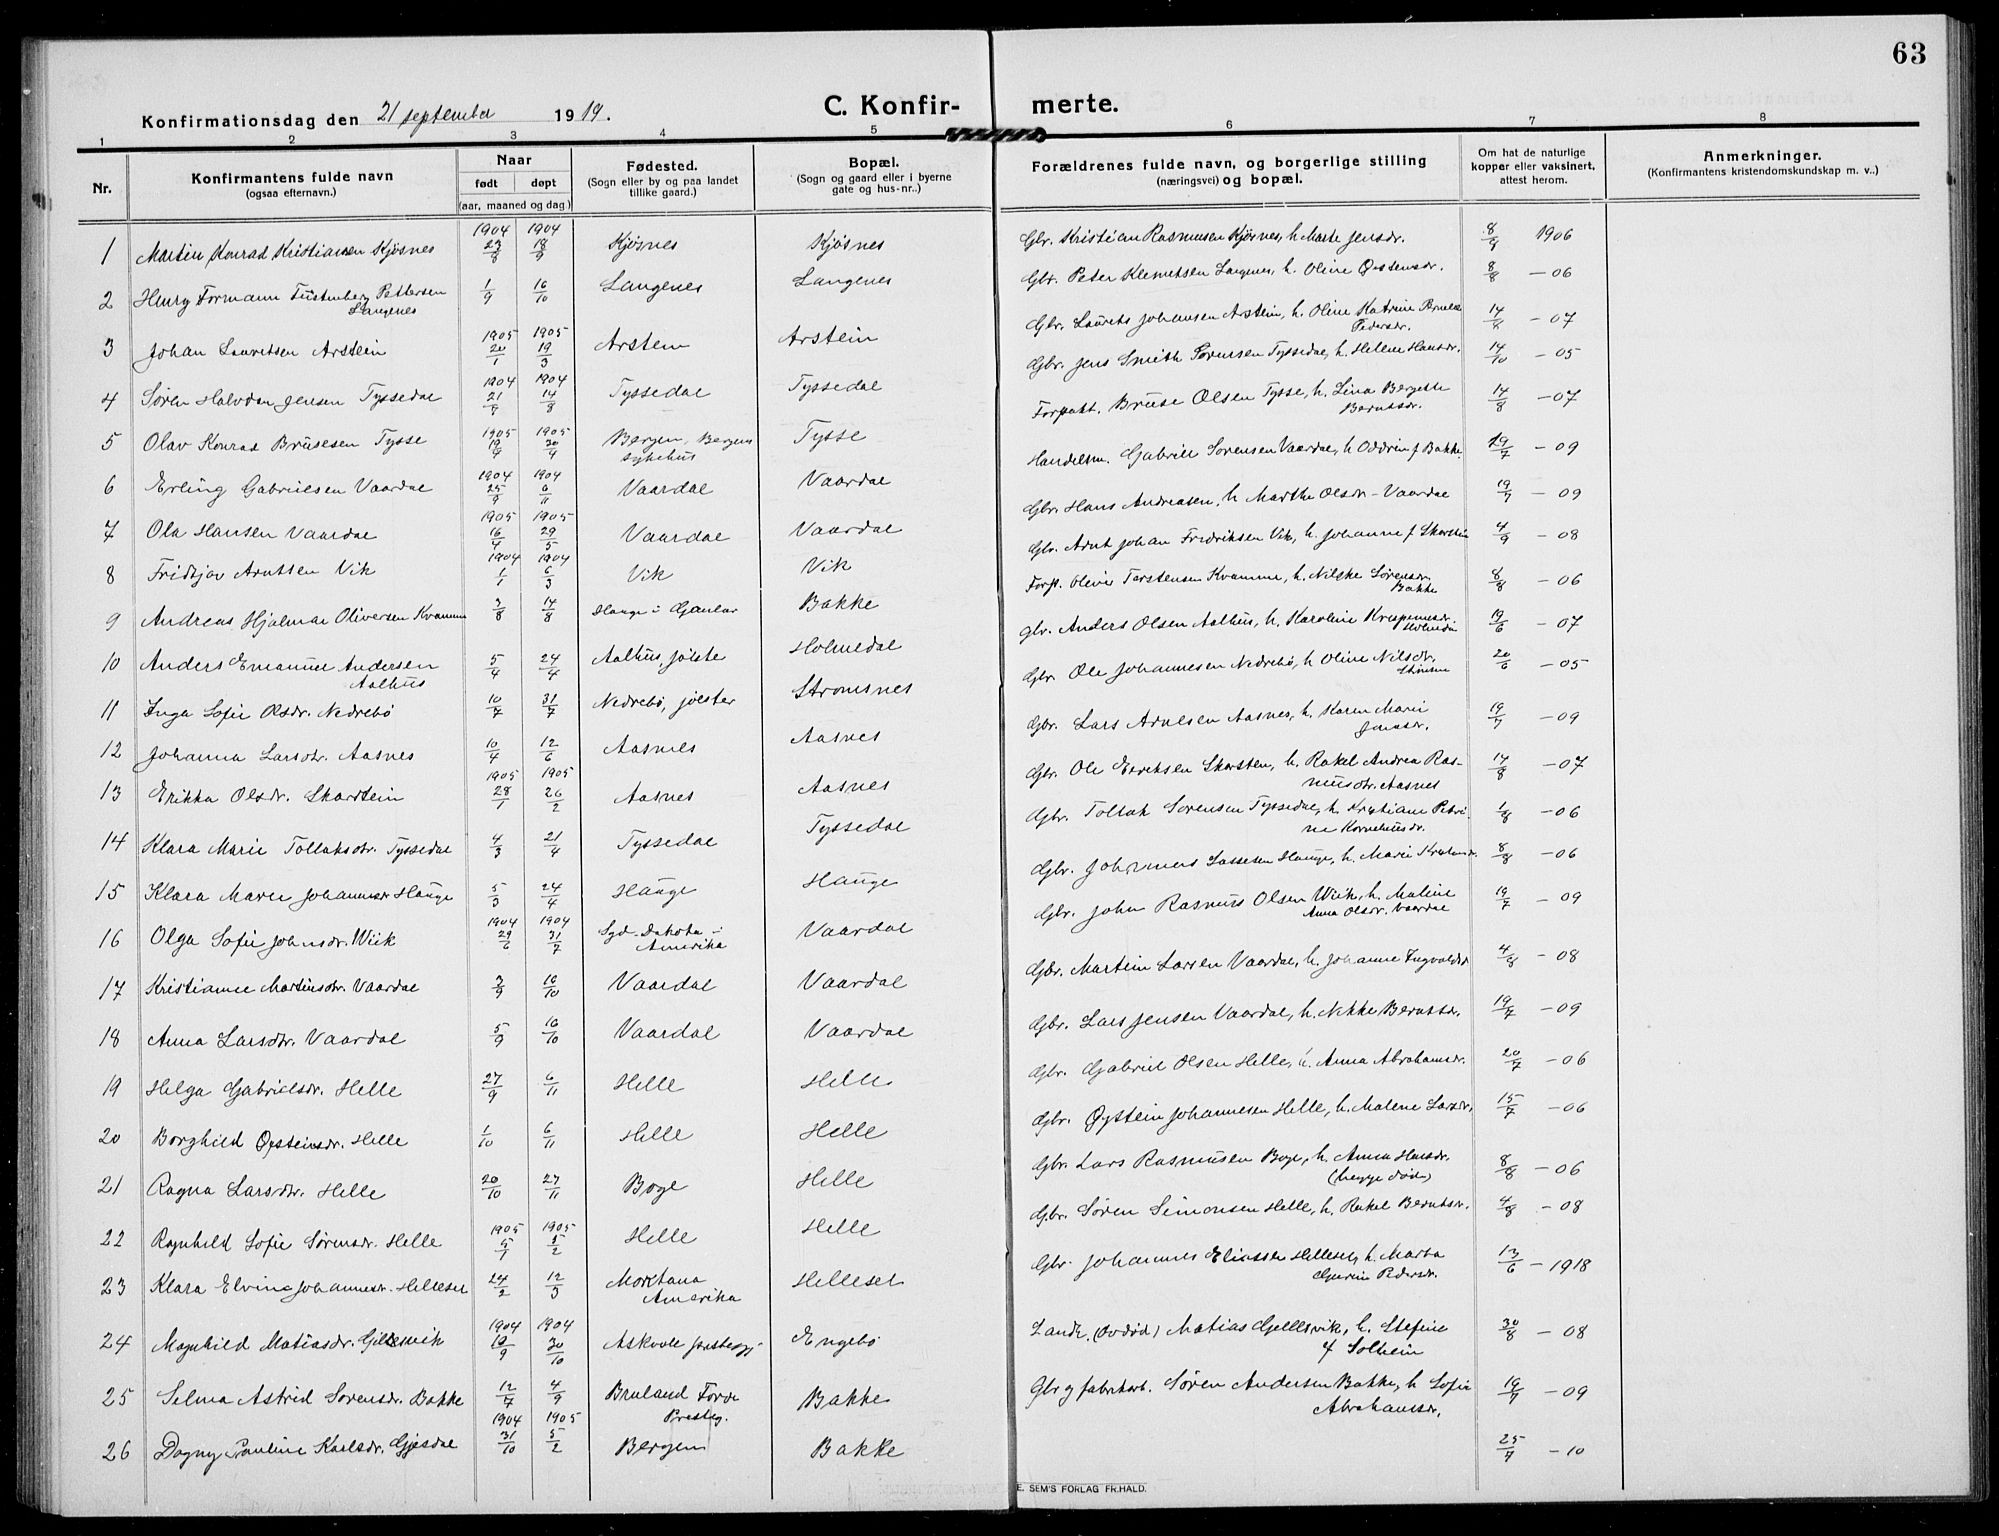 63
Konfirmationsdag den 21 september 1919.
C. Konfirmerte.
1 2 3 4 5 6 7 8
Nr.
Konfirmantens fulde navn
(ogsaa efternavn.)
Naar
født døpt
(aar, maaned og dag)
Fødested.
(Sogn eller by og paa landet
tillike gaard.)
Bopæl.
(Sogn og gaard eller i byerne
gate og hus-nr.)
Forældrenes fulde navn, og borgerlige stilling
(næringsvei) og bopæl.
Om hat de naturlige
kopper eller vaksinert,
attest herom.
Anmerkninger.
(Konfirmantens kristendomskundskap m. v.)
1904 1904
1 Martin Konrad Kristiansen Kjøsnes 23/8 18/9 Kjøsnes Kjøsnes Gbr. Kristian Rasmusen Kjøsnes, h. Marte Jensdr. 8/9 1906
2 Henry Formann Petersen 1/9 16/10 Langenes Langenes Gbr. Peter Klemetsen Langenes, h. Oline Østensdr. 8/8 – 06
Langenes
1905 1905
3 Johan Lauritsen Arstein 20/1 19/3 Arstein Arstein Gbr. Laurits Johansen Arstein, h. Oline Katrine 14/4 – 07
Pedersdr.
1904 1904
4 Søren Halvdan Jensen Tyssedal 21/7 14/8 Tyssedal Tyssedal Gbr. Jens Smith Sørensen Tyssedal, h. Helene Hansdr. 14/10 – 05
1905 1905
5 Olav Konrad Brusesen Tysse 19/4 30/4 Bergen, Bergens Tysse Forpakt. Bruse Olsen Tysse, h. Lina Bergette 14/8 – 07
sykehus
Berntsdr.
1904 1904
6 Erling Gabrielsen Vaardal 25/9 6/11 Vaardal Vaardal Handelsm. Gabriel Sørensen Vaardal, h. Oddrin f Bakke 19/7 – 09
1905 1905
7 Ola Hansen Vaardal 16/4 29/5 Vaardal Vaardal Gbr. Hans Andreasen, h. Marthe Olsdr – Vaardal 19/7 – 09
1904 1904
8 Fridtjov Arntsen Vik 1/1 6/3 Vik Vik Gbr. Arnt Johan Fredriksen Vik, h. Johanne f Skorstein 4/9 – 08
9 Andreas Hjalmar Oliversen Kvamme 3/8 14/8 Hauge i Gaular Bakke Forp. Oliver Torstensen Kvamme, h. Nilske Sørensdr. 8/8 – 06
Bakke
10 Anders Emanuel Andersen 5/4 24/4 Aalhus, Jølster Holmedal Gbr. Anders Olsen Aalhus, h. Karoline Krispinusdr. 19/6 – 07
Aalhus
Holmedal
11 Inga Sofie Olsdr. Nedrebø 10/7 31/7 Nedrebø, Jølster Stromsnes Gbr. Ole Johannesen Nedrebø, h. Oline Nilsdr. 20/6 – 05
12 Johanna Larsdtr. Aasnes 10/4 12/6 Aasnes Aasnes Gbr. Lars Arnesen Aasnes, h. Karen Marie 19/7 – 09
Jensdr.
1905 1905
13 Erikka Olsdr. Skorstein 28/1 26/2 Aasnes Aasnes Gbr. Ole Eriksen Skorsten, h. Rakel Andrea Ras- 14/8 – 07
musdtr. Aasnes
14 Klara Marie Tollaksdtr. Tyssedal 4/3 21/4 Tyssedal Tyssedal Gbr. Tollak Sørensen Tyssedal, h. Kristiane Petri- 1/8 – 06
ne Korneliusdr.
15 Klara Marie Johannesdr. Hauge 5/3 24/4 Hauge Hauge Gbr. Johannes Lassesen Hauge, h. Marie 8/8 – 06
1904 1904
16 Olga Sofie Johnsdr. Wiik 29/6 31/7 Syd-Dakota i Vaardal Gbr. John Rasmus Olsen Wiik, h. Maline 19/7 – 09
Amerika
Anna Olsdr. Vaardal
17 Kristianne Martinsdtr. Vaardal 3/9 16/10 Vaardal Vaardal Gbr. Martin Larsen Vaardal, h. Johanne Ingvaldsdr 4/8 – 08
18 Anna Larsdtr. Vaardal 5/9 16/10 Vaardal Vaardal Gbr. Lars Jensen Vaardal, h. Nikke Berntsdr. 19/7 – 09
19 Helga Gabrielsdr. Helle 27/9 6/11 Helle Helle Gbr. Gabriel Olsen Helle, h. Anna Abrahamsdr. 20/7 – 06
20 Borghild Øysteinsdr. Helle 1/10 6/11 Helle Helle Gbr. Øystein Johannesen Helle, h. Malene Larsdr, 15/7 – 06
21 Ragna Larsdtr. Helle 20/10 27/11 Boge Helle Gbr. Lars Rasmusen Boge, h. Anna Hansdr. 8/8 – 06
(begge døde)
1905 1905
22 Ragnhild Sofie Sørensdr. Helle 5/1 5/2 Helle Helle Gbr. Søren Simonsen Helle, h. Rakel Berntsdr. 4/8 – 08
23 Klara Elvine Johannesdr. Hellesel 24/2 12/3 Montana Hellesel Gbr. Johannes Eliassen Hellesel, h. Marta 13/6 – 1918
Amerika
Gurine Pedersdr.
1904 1904
24 Magnhild Matiasdr. Gjellesvik 10/9 30/10 Askvoll prestegj. Engebø Landh. (død) Matias Gjellesvik, h. Stefine 30/8 – 08
f Solheim
25 Selma Astrid Sørensdr. Bakke 12/7 4/9 Bruland Førde Bakke Gbr og fabrikarb. Søren Andersen Bakke, h Sofie 19/7 – 09
Presteg.
Abrahamsdr,
1904 1905
26 Dagny Pauline Karlsdr. Gjesdal 31/10 5/2 Bergen Bakke 25/7 – 10
E. SEM'S FORLAG FR.HALD.